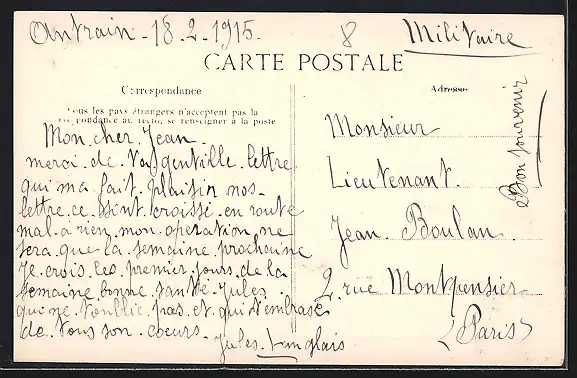 Antrain - 18.2.1915.
8
Militaire
CARTE POSTALE
Correspondance
Tous les pays étrangers n'acceptent pas la
correspondance au recto, se renseigner à la poste
Mon cher Jean
merci de ta gentille lettre
qui ma fait plaisir nos
lettre ce sont croissé en route
mal a rien mon opération ne
sera que la semaine prochaine
Je crois les premier jours de la
semaine bonne santé Jules
qui ne t'oublie pas et qui t'embrasse
de tous son coeurs.
Jules Langlais
Adresse
Monsieur
Lieutenant
Jean Boulan
2 rue Montpensier
(Paris)
Bon souvenir